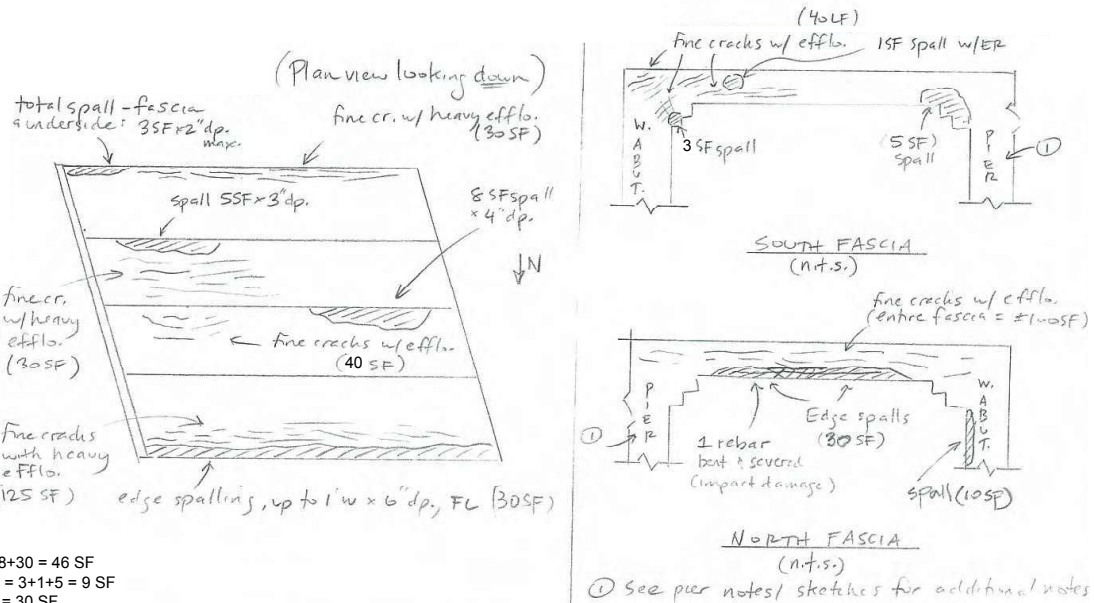 (Plan view looking down)
total spall - fascia
& underside: 3SF x 2" dp.
max.
fine cr. w/ heavy efflo.
(30 SF)
spall 5SF x 3" dp.
8 SF spall
x 4" dp.
↓N
fine cr.
w/ heavy
efflo.
(30 SF)
← fine cracks w/ efflo.
(40 SF)
fine cracks
with heavy
efflo.
(125 SF)
edge spalling, up to 1' w x 6" dp., FL (30SF)
8+30 = 46 SF
= 3+1+5 = 9 SF
= 30 SF
(40 LF)
fine cracks w/ efflo.
1SF spall w/ER
W. ABUT.
3 SF spall
(5 SF)
spall
PIER
①
SOUTH FASCIA
(n.t.s.)
fine cracks w/ efflo.
(entire fascia = ±100SF)
PIER
①
1 rebar
bent & severed
(impact damage)
Edge spalls
(30 SF)
W. ABUT.
spall (10SF)
NORTH FASCIA
(n.t.s.)
① See pier notes/ sketches for additional notes